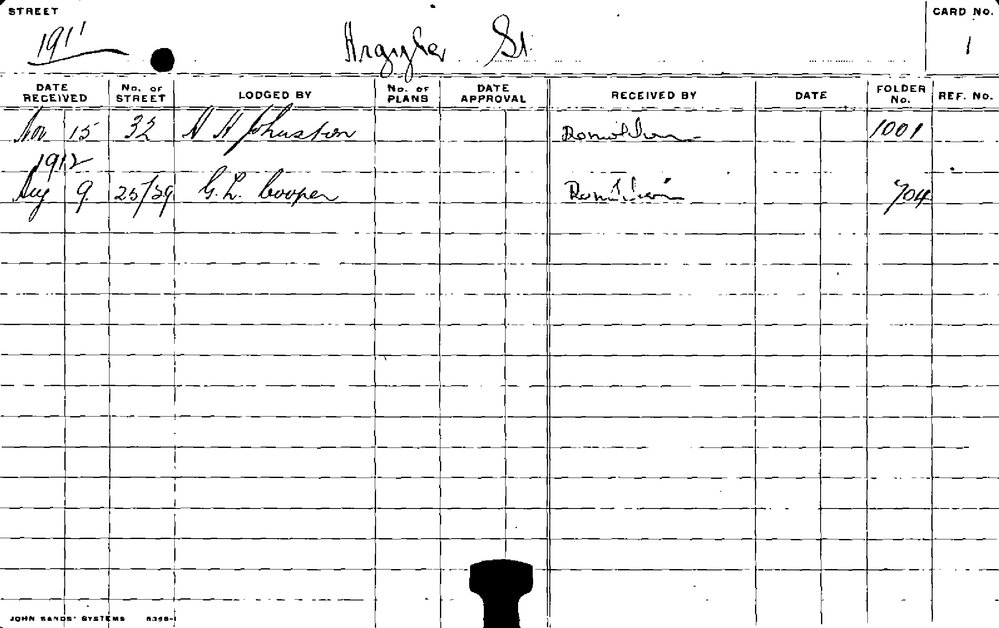 STREET
1911 Argyle St.
CARD NO.
1
DATE RECEIVED No. OF STREET LODGED BY No. OF PLANS DATE APPROVAL RECEIVED BY DATE FOLDER No. REF. No.
Nov 15 32 H H Johnston 1001
1912
Aug 9. 25/29 G. L. Cooper 704
JOHN SANDS' SYSTEMS